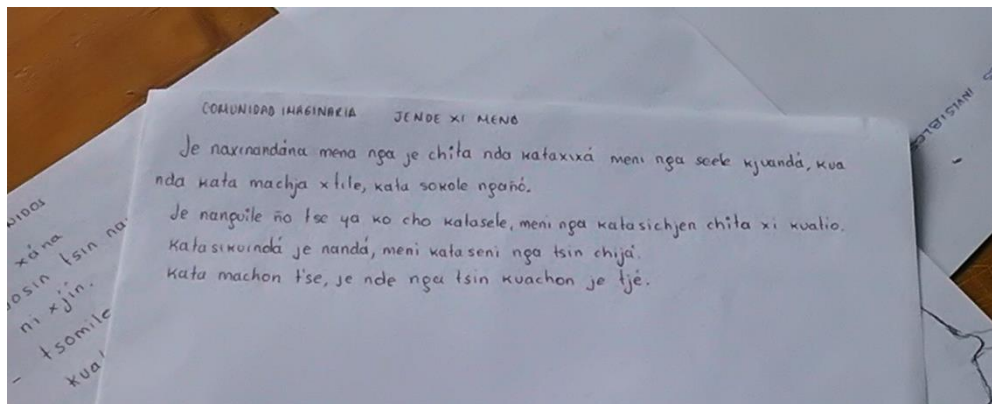 COMUNIDAD IMAGINARIA JENDE XI MENO
Je naxinandána mena nga je chita nda kataxixá meni nga seele kjuandá, kua
nda kata machja xtile, kata sokole nganó.
Je nanguile ño tse ya ko cho katasele, meni nga katasichjen chita xi kualio.
Katasikuindá je nandá, meni kataseni nga tsin chijá.
Kata machon t'se, je nde nga tsin kuachon je tjé.
NIDOS
xána
josin tsin na
ni xjin.
- tsomile
kua
INVISIBLE